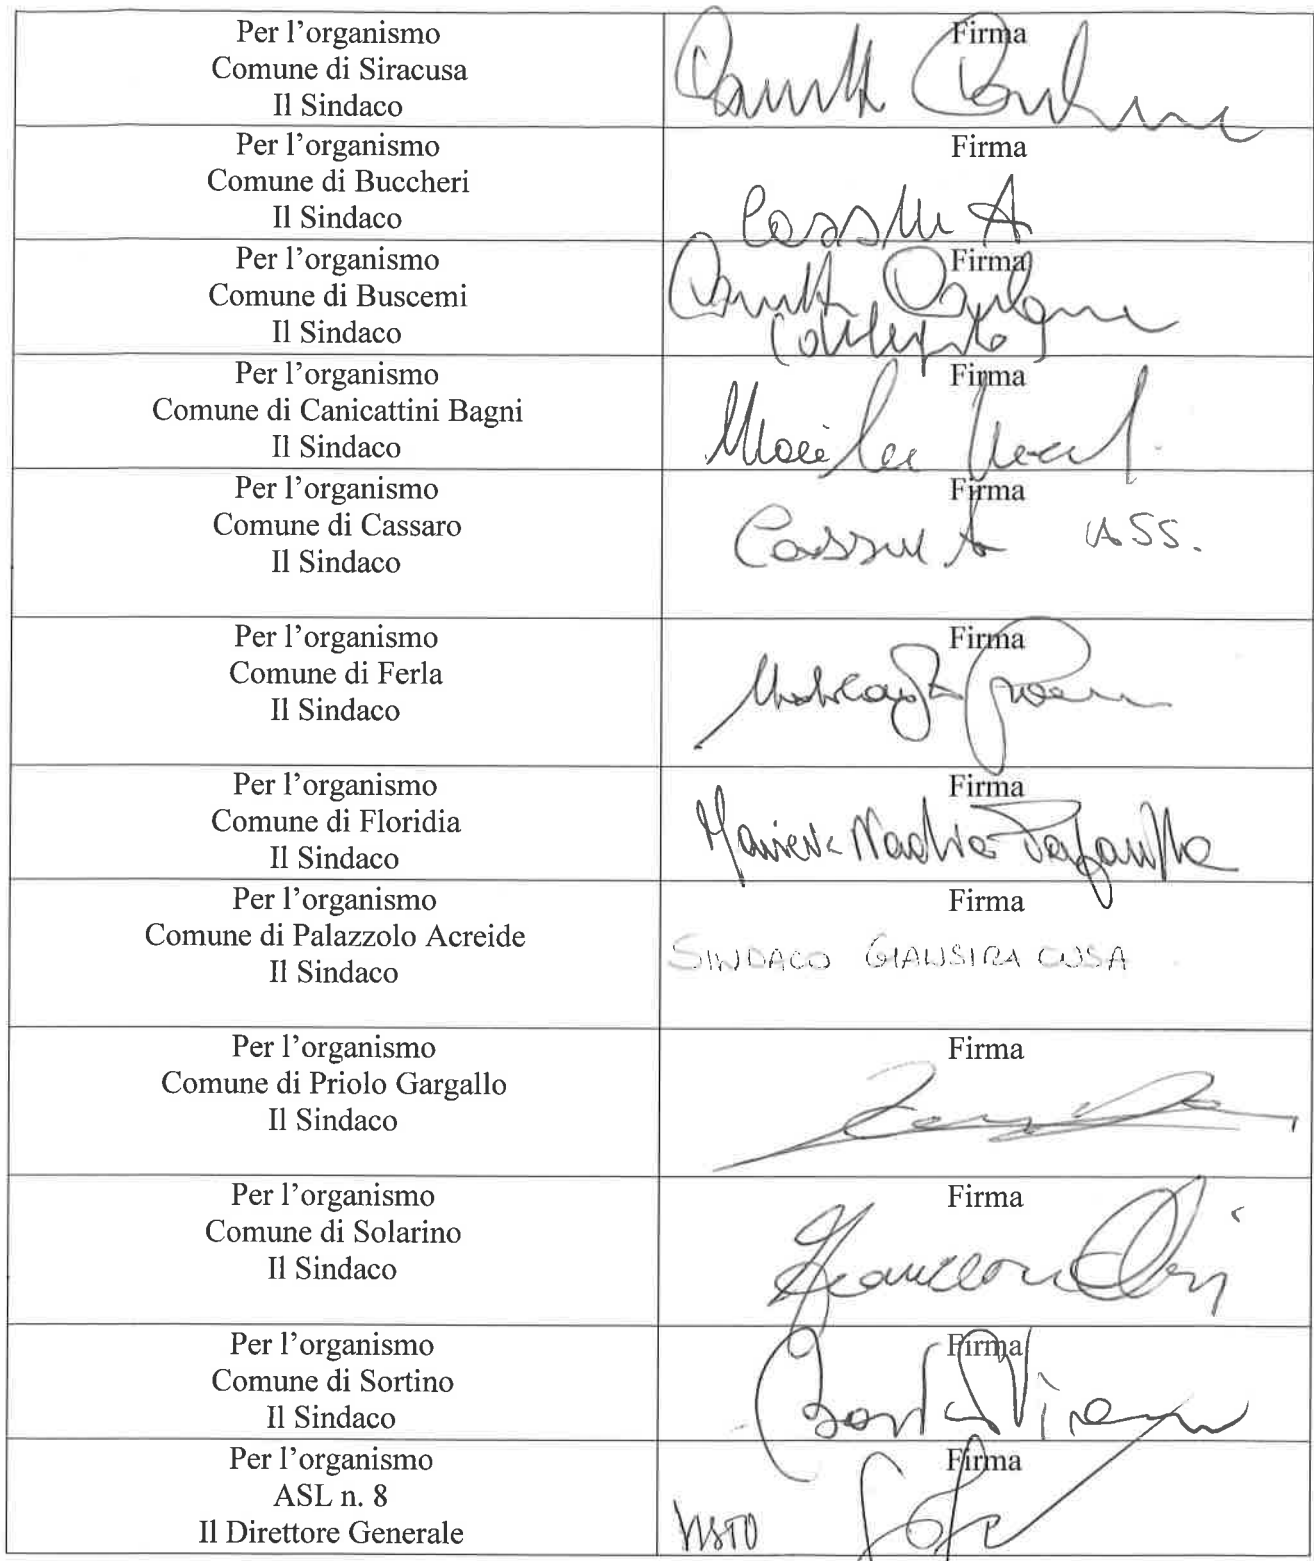 Per l'organismo
Comune di Siracusa
Il Sindaco
Firma
Per l'organismo
Comune di Buccheri
Il Sindaco
Firma
Per l'organismo
Comune di Buscemi
Il Sindaco
Firma
Per l'organismo
Comune di Canicattini Bagni
Il Sindaco
Firma
Per l'organismo
Comune di Cassaro
Il Sindaco
Firma
ASS.
Per l'organismo
Comune di Ferla
Il Sindaco
Firma
Per l'organismo
Comune di Floridia
Il Sindaco
Firma
Nadia
Per l'organismo
Comune di Palazzolo Acreide
Il Sindaco
Firma
SINDACO GIANSIRACUSA
Per l'organismo
Comune di Priolo Gargallo
Il Sindaco
Firma
Per l'organismo
Comune di Solarino
Il Sindaco
Firma
Per l'organismo
Comune di Sortino
Il Sindaco
Firma
Per l'organismo
ASL n. 8
Il Direttore Generale
Firma
VISTO